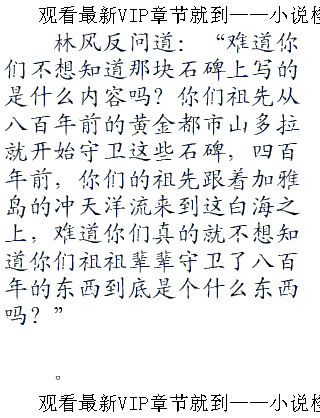 观看最新VIP章节就到——小说检
林风反问道：“难道你
们不想知道那块石碑上写的
是什么内容吗？你们祖先从
八百年前的黄金都市山多拉
就开始守卫这些石碑，四百
年前，你们的祖先跟着加雅
岛的冲天洋流来到这白海之
上，难道你们真的就不想知
道你们祖祖辈辈守卫了八百
年的东西到底是个什么东西
吗？”
。
观看最新VIP章节就到——小说检